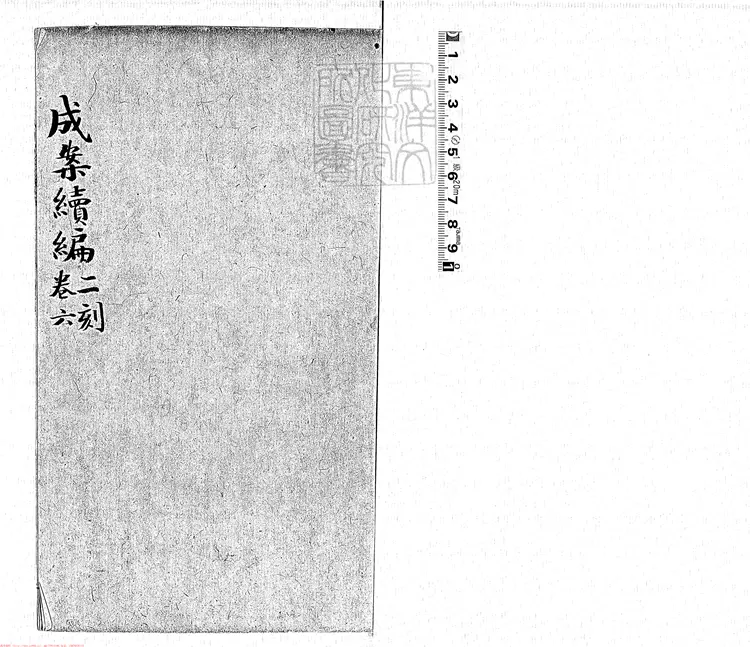 成案續編
二刻
卷六
東洋文
化研究
所圖書
1 2 3 4 5 6 7 8 9